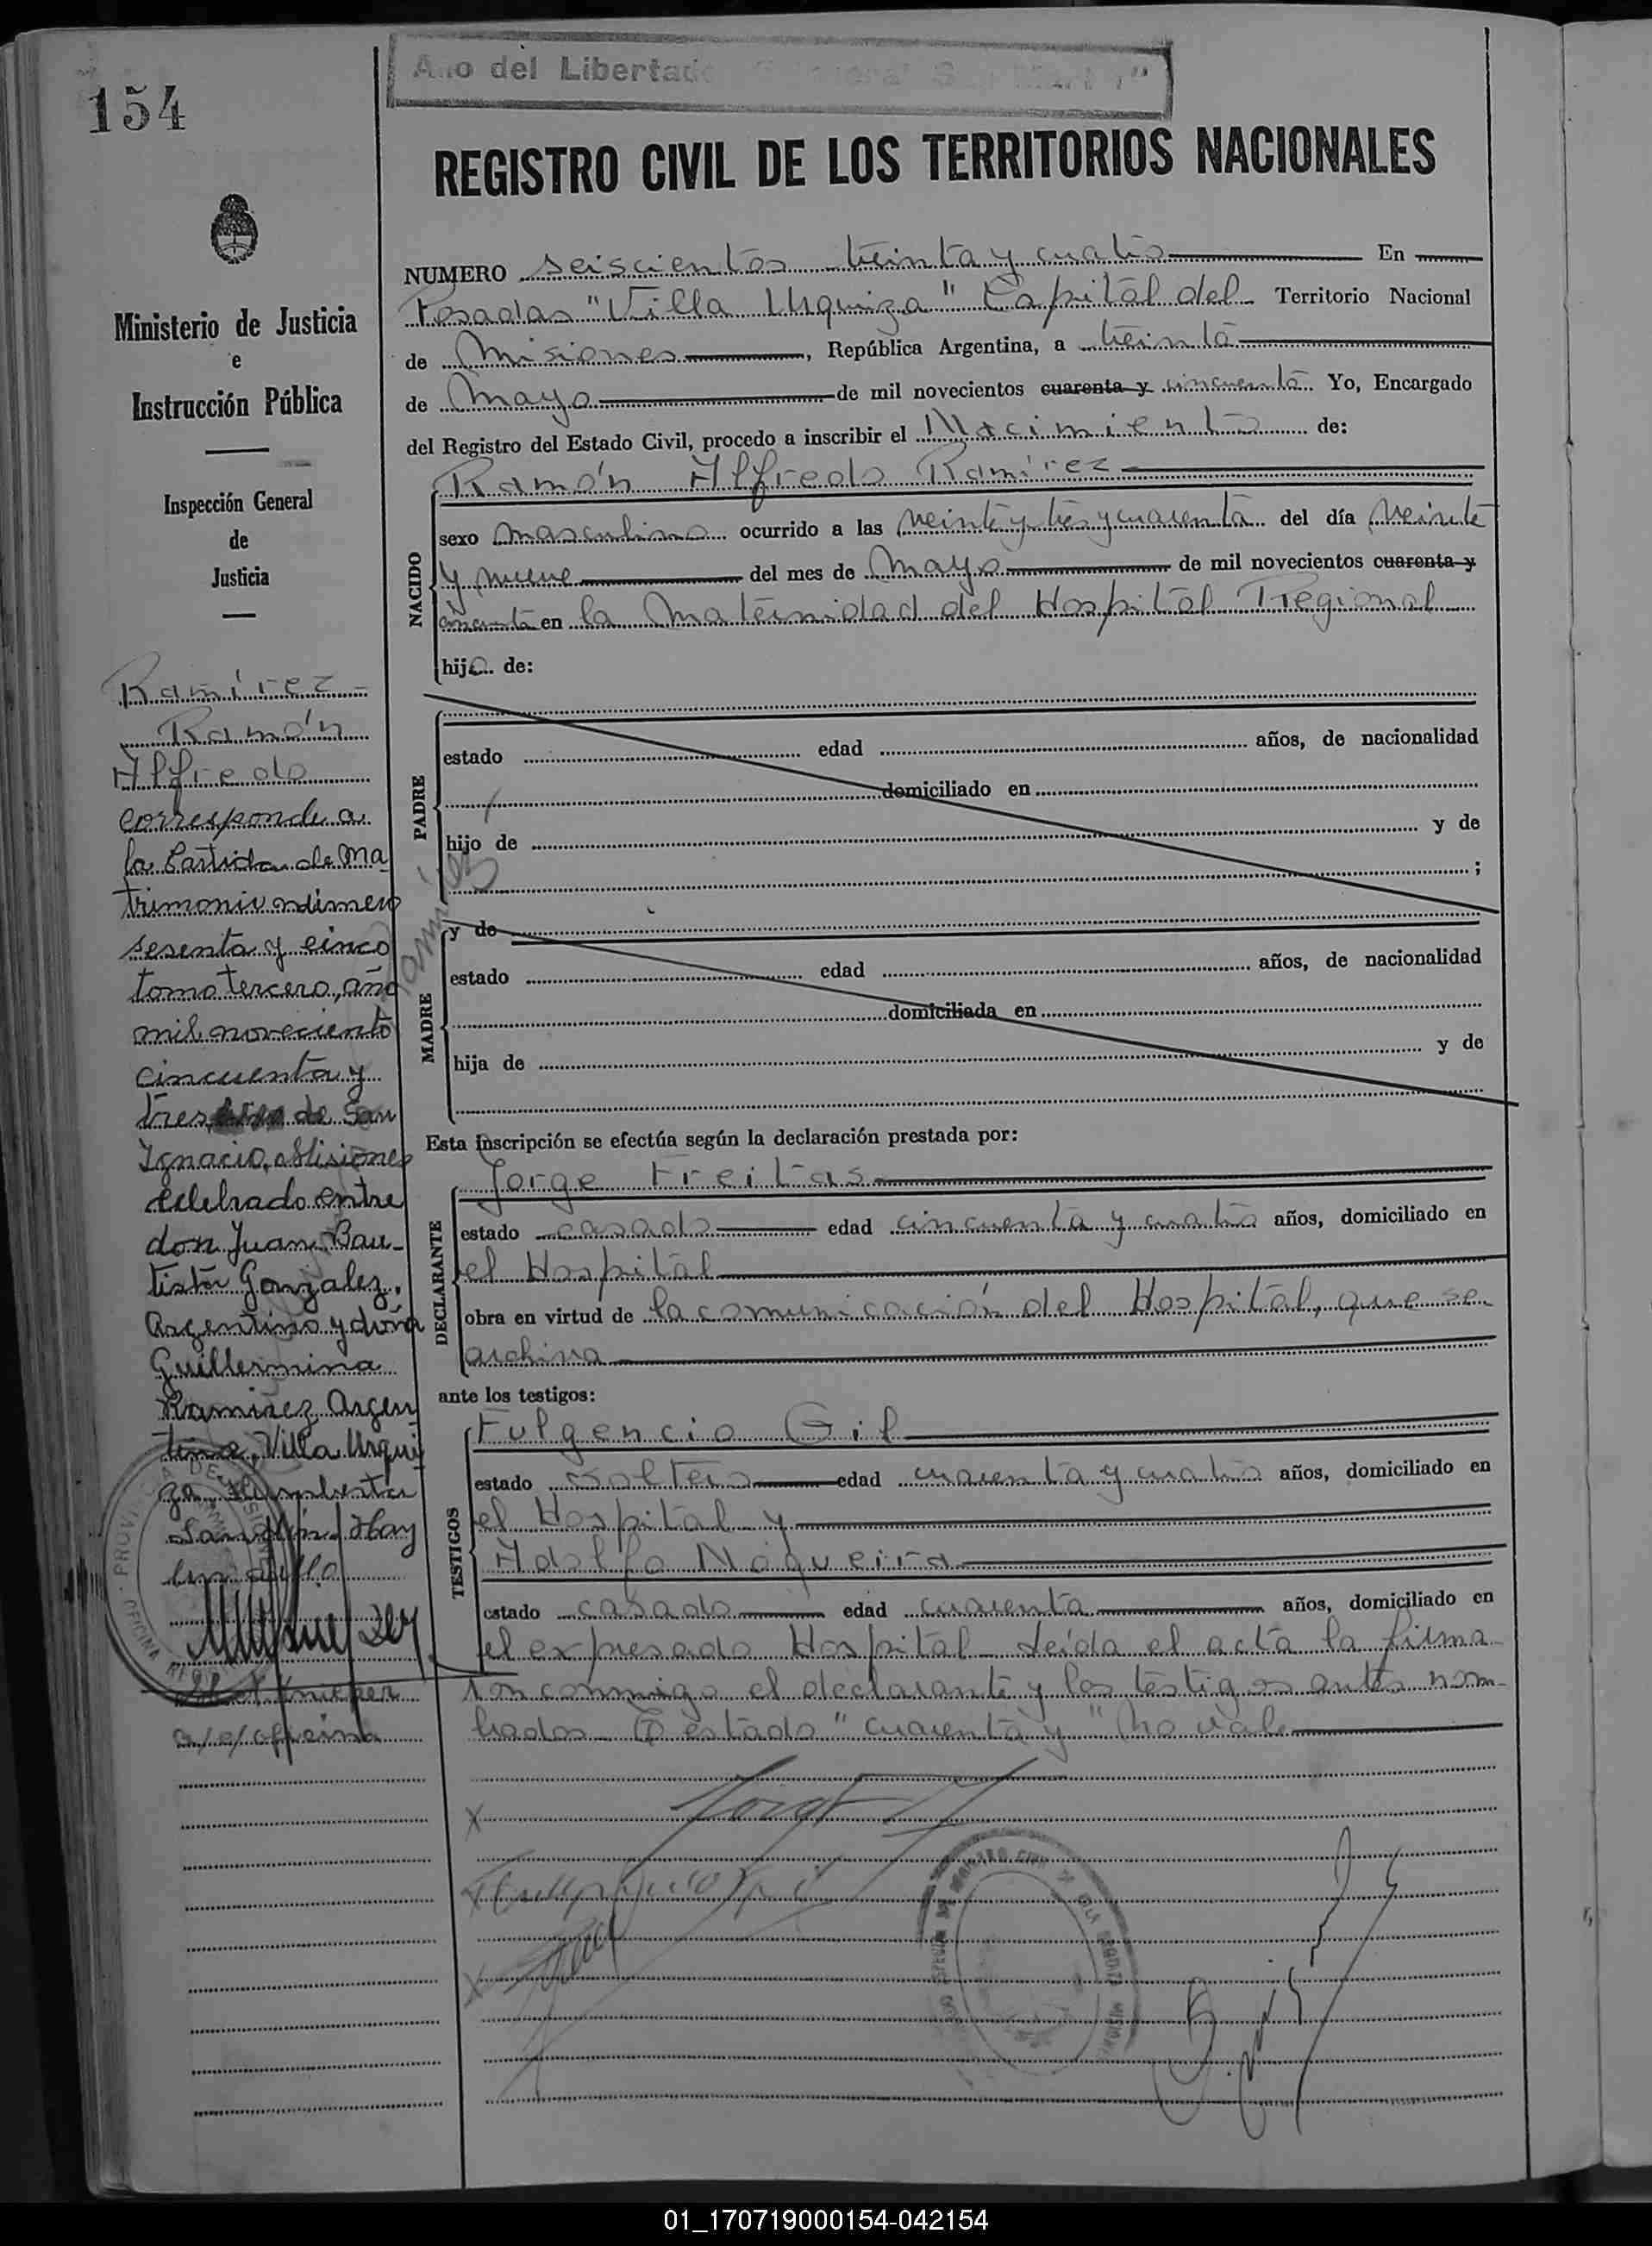 154
Año del Libertador General San Martín"
REGISTRO CIVIL DE LOS TERRITORIOS NACIONALES
Ministerio de Justicia
e
Instrucción Pública
Inspección General
de
Justicia
Ramírez
Ramón
Alfredo
corresponde a
la Partida de Ma
trimonio número
sesenta y cinco
tomo tercero, año
mil noveciento
cincuenta y
tres, de San
Ignacio, Misiones
celebrado entre
don Juan Bau-
tista Gonzalez,
Argentino y doña
Guillermina
Ramírez Argen
tina, Villa Urqui
za
a/c/ oficina
NUMERO seiscientos treinta y cuatro En
Posadas "Villa Urquiza" Capital del Territorio Nacional
de Misiones, República Argentina, a treinta
de Mayo de mil novecientos cuarenta y cincuenta Yo, Encargado
del Registro del Estado Civil, procedo a inscribir el Nacimiento de:
NACIDO
Ramón Alfredo Ramírez
sexo masculino ocurrido a las veinte y tres y cuarenta del día veinte
y nueve del mes de Mayo de mil novecientos cuarenta y
cincuenta en la Maternidad del Hospital Regional
hijo de:
PADRE
estado edad años, de nacionalidad
domiciliado en
hijo de y de
;
MADRE
y de
estado edad años, de nacionalidad
domiciliada en
hija de y de
Esta inscripción se efectúa según la declaración prestada por:
DECLARANTE
Jorge Freitas
estado casado edad cincuenta y cuatro años, domiciliado en
el Hospital
obra en virtud de la comunicación del Hospital, que se
archiva
ante los testigos:
TESTIGOS
Fulgencio Gil
estado soltero edad cuarenta y cuatro años, domiciliado en
el Hospital y
Adolfo Nogueira
estado casado edad cuarenta años, domiciliado en
el expresado Hospital Leída el acta la firma
ron conmigo el declarante y los testigos antes nom-
brados. estado "cuarenta y" No vale
01_170719000154-042154